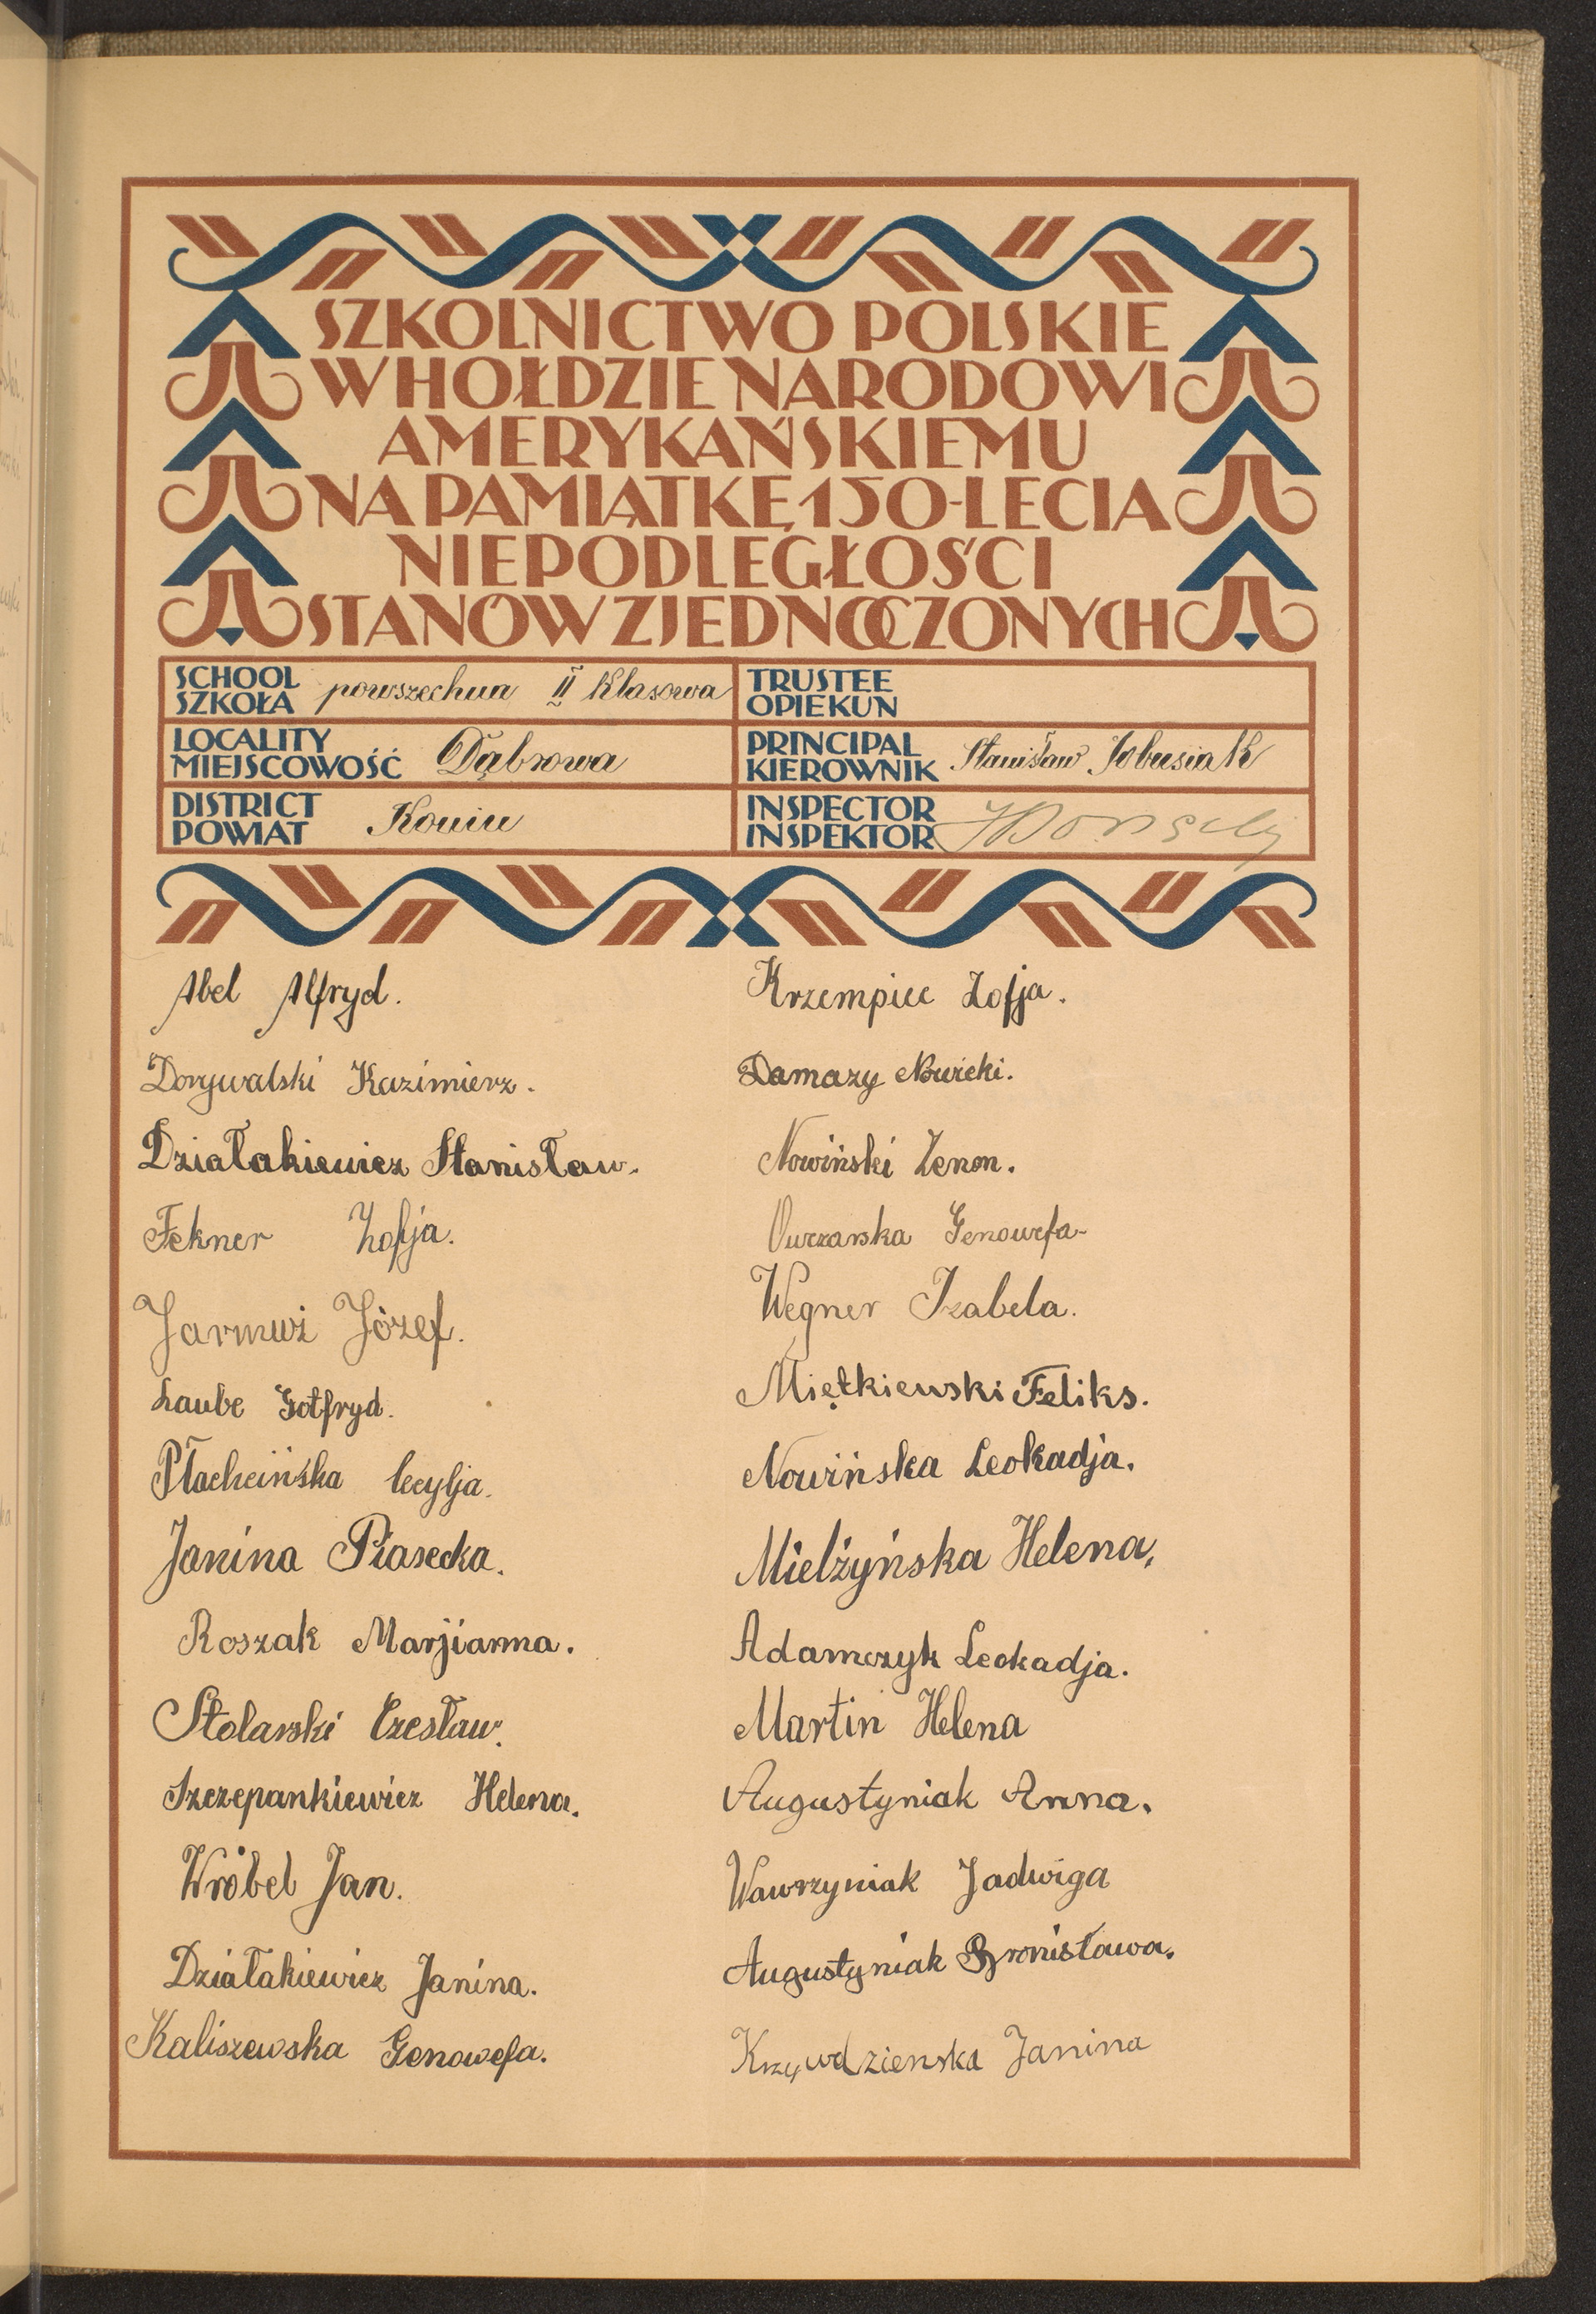 SZKOLNICTWO POLSKIE
W HOŁDZIE NARODOWI
AMERYKAŃSKIEMU
NA PAMIĄTKĘ 150-LECIA
NIEPODLEGŁOŚCI
STANÓW ZJEDNOCZONYCH
SCHOOL
SZKOŁA powszechna II klasowa
TRUSTEE
OPIEKUN
LOCALITY
MIEJSCOWOŚĆ Dąbrowa
PRINCIPAL
KIEROWNIK Stanisław Jobusiak
DISTRICT
POWIAT Konin
INSPECTOR
INSPEKTOR
Abel Alfryd.
Dorywalski Kazimierz.
Działakiewicz Stanisław.
Fekner Zofja.
Jarmuż Józef.
Laube Gotfryd.
Płachcińska Cecylja.
Janina Piasecka.
Roszak Marjianna.
Stolarski Czesław.
Szczepankiewicz Helena.
Wróbel Jan.
Działakiewicz Janina.
Kaliszewska Genowefa.
Krzempiec Zofja.
Damazy Nowicki.
Nowiński Zenon.
Owczarska Genowefa
Wegner Izabela.
Miętkiewski Feliks.
Nowińska Leokadja.
Mielżyńska Helena,
Adamczyk Leokadja.
Martin Helena
Augustyniak Anna.
Wawrzyniak Jadwiga
Augustyniak Bronisława.
Krzywdzienska Janina